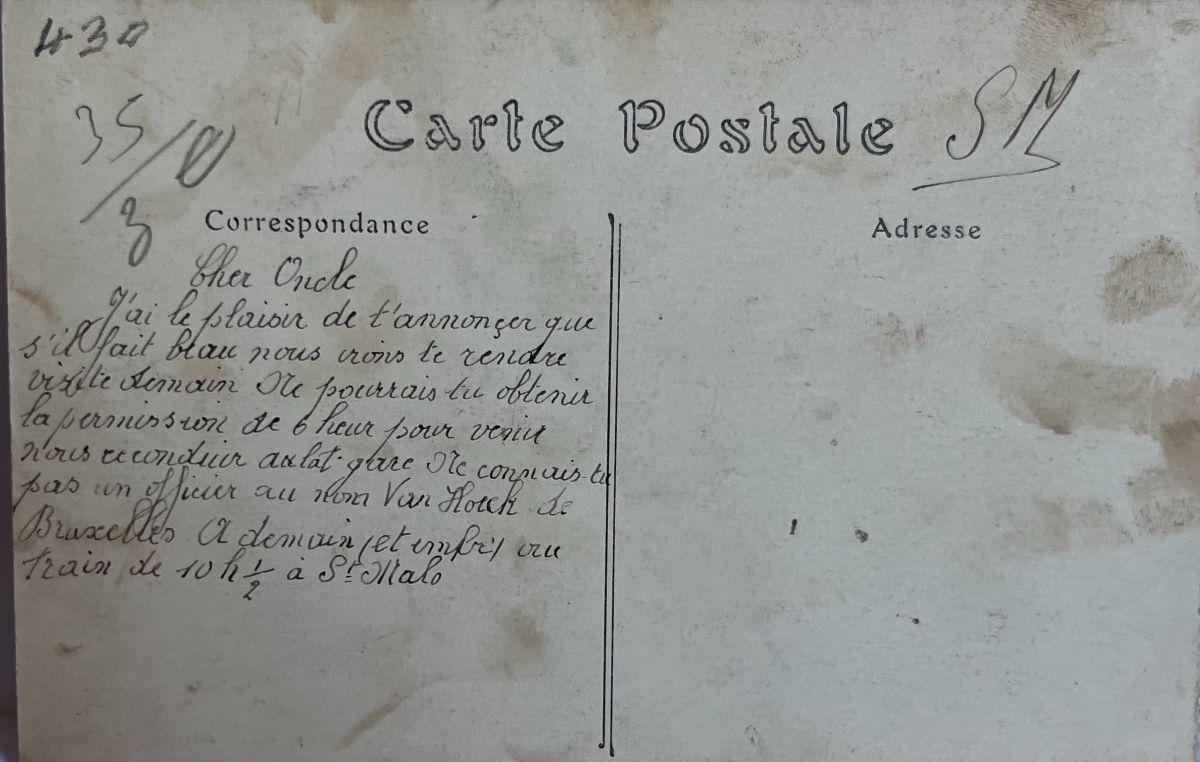 430
35/
3
Carte Postale
SM
Correspondance
Adresse
Cher Oncle
J'ai le plaisir de t'annonçer que
s'il fait beau nous irons te rendre
visite demain Ne pourrais-tu obtenir
la permission de 6 heur pour venir
nous reconduir a la gare Ne connais-tu
pas un officier au nom Van Hoek de
Bruxelles A demain au
train de 10 h 1/2 à St Malo